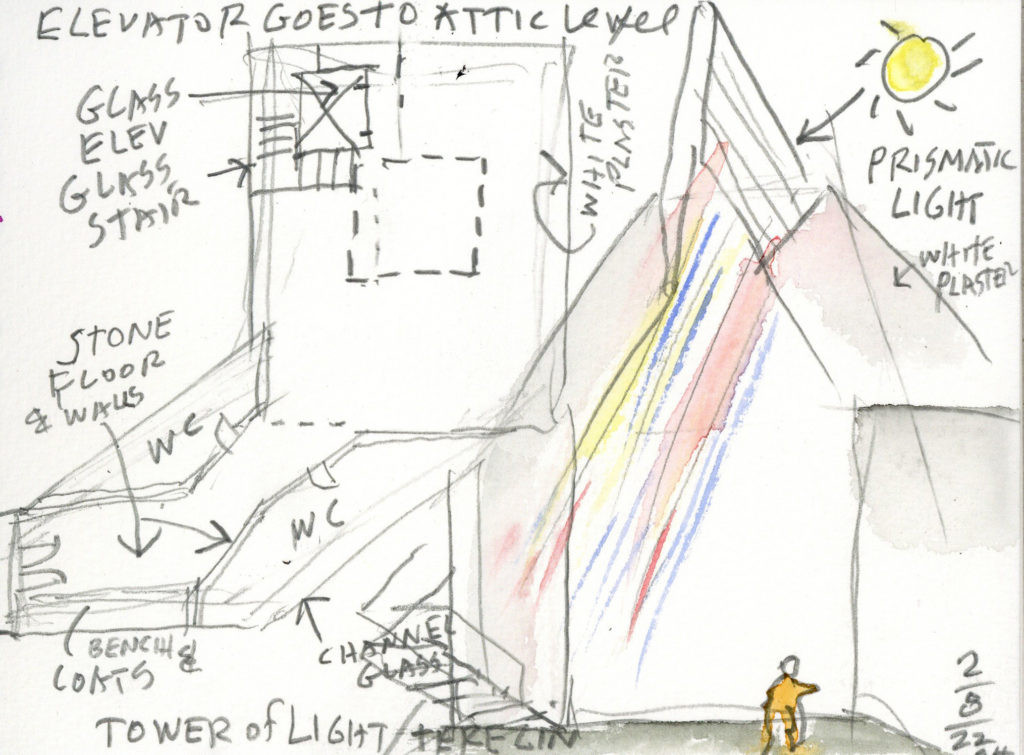 ELEVATOR GOES TO ATTIC Level
GLASS
ELEV
GLASS
STAIR
WHITE
PLASTER
PRISMATIC
LIGHT
WHITE
PLASTER
STONE
FLOOR
& WALLS
WC
WC
BENCH &
COATS
CHANNEL
GLASS
TOWER of LIGHT TEREZIN
2
8
22